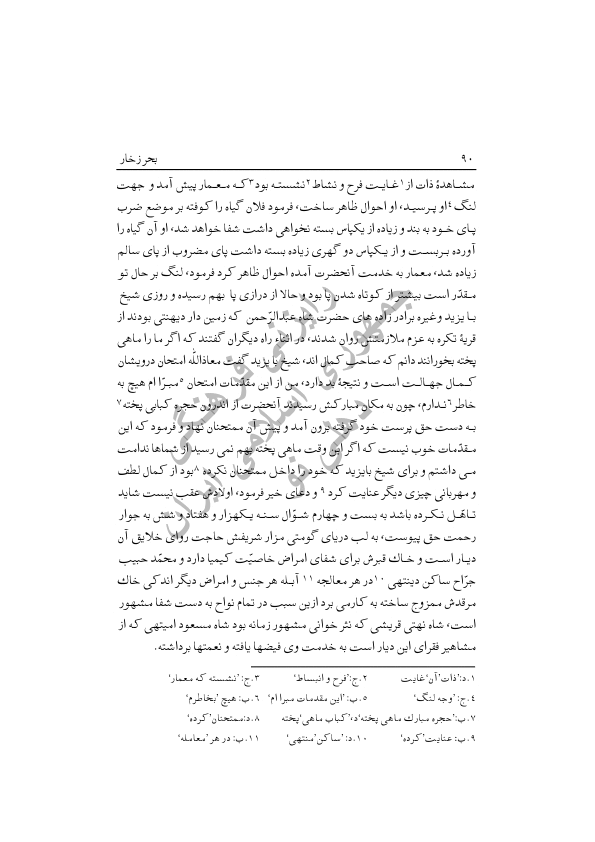 ۹۰ بحر زخار
مشاهدهٔ ذات از۱غایت فرح و نشاط۲نشسته بود۳که معمار پیش آمد و جهت
لنگ۴او پرسید، او احوال ظاهر ساخت، فرمود فلان گیاه را کوفته بر موضع ضرب
پای خود به بند و زیاده از یکپاس بسته نخواهی داشت شفا خواهد شد، او آن گیاه را
آورده بربست و از یکپاس دو گهری زیاده بسته داشت پای مضروب از پای سالم
زیاده شد، معمار به خدمت آنحضرت آمده احوال ظاهر کرد فرمود، لنگ بر حال تو
مقدّر است بیشتر از کوتاه شدن پا بود و حالا از درازی پا بهم رسیده و روزی شیخ
بایزید وغیره برادر زاده های حضرت شاه عبدالرّحمن که زمین دار دیهنتی بودند از
قریهٔ تکره به عزم ملازمتش روان شدند، در اثناء راه دیگران گفتند که اگر ما را ماهی
پخته بخورانند دانم که صاحب کمال اند، شیخ بایزید گفت معاذالله امتحان درویشان
کمال جهالت است و نتیجهٔ بد دارد، من از این مقدّمات امتحان ۵مبرّا ام هیچ به
خاطر۶ندارم، چون به مکان مبارکش رسیدند آنحضرت از اندرون حجره کبابی پخته۷
به دست حق پرست خود گرفته برون آمد و پیش آن ممتحنان نهاد و فرمود که این
مقدّمات خوب نیست که اگر این وقت ماهی پخته بهم نمی رسید از شماها ندامت
می داشتم و برای شیخ بایزید که خود را داخل ممتحنان نکرده ۸بود از کمال لطف
و مهربانی چیزی دیگر عنایت کرد ۹ و دعای خیر فرمود، اولادش عقب نیست شاید
تاهّل نکرده باشد به بست و چهارم شوّال سنه یکهزار و هفتاد و شش به جوار
رحمت حق پیوست، به لب دریای گومتی مزار شریفش حاجت روای خلایق آن
دیار است و خاك قبرش برای شفای امراض خاصیّت کیمیا دارد و محمّد حبیب
جرّاح ساکن دینتهی ۱۰در هر معالجه ۱۱ آبله هر جنس و امراض دیگر اندکی خاك
مرقدش ممزوج ساخته به کارمی برد ازین سبب در تمام نواح به دست شفا مشهور
است، شاه نهتی قریشی که نثر خوانی مشهور زمانه بود شاه مسعود امیتهی که از
مشاهیر فقرای این دیار است به خدمت وی فیضها یافته و نعمتها برداشته.
۱.د:’ذات‘آن‘غایت ۲.ج:’فرح و انبساط‘ ۳.ج: ’نشسته که معمار‘
۴.ج: ’وجه لنگ‘ ۵.ب: ’این مقدمات مبرا ام‘ ۶.ب: هیچ ’بخاطرم‘
۷.ب:’حجره مبارك ماهی پخته‘د،’کباب ماهی‘پخته ۸.د:ممتحنان’کرده‘
۹.ب: عنایت’کرده‘ ۱۰.د: ’ساکن’منتهی‘ ۱۱.ب: در هر ’معامله‘
رایزنی فرهنگی
جمهوری اسلامی ایران
دهلی نو